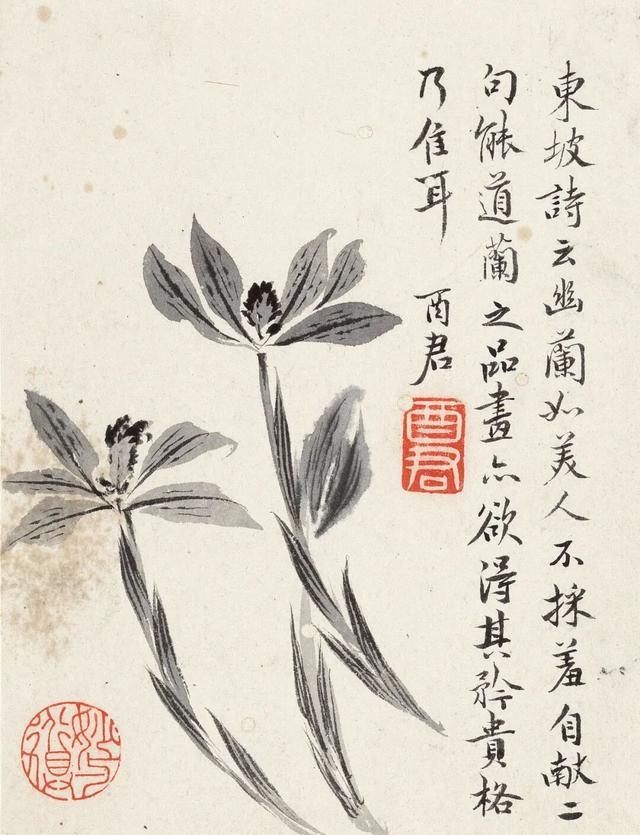 東坡詩云幽蘭如美人不採羞自献二
句能道蘭之品畫亦欲得其矜貴格
乃佳耳 酉君
酉君